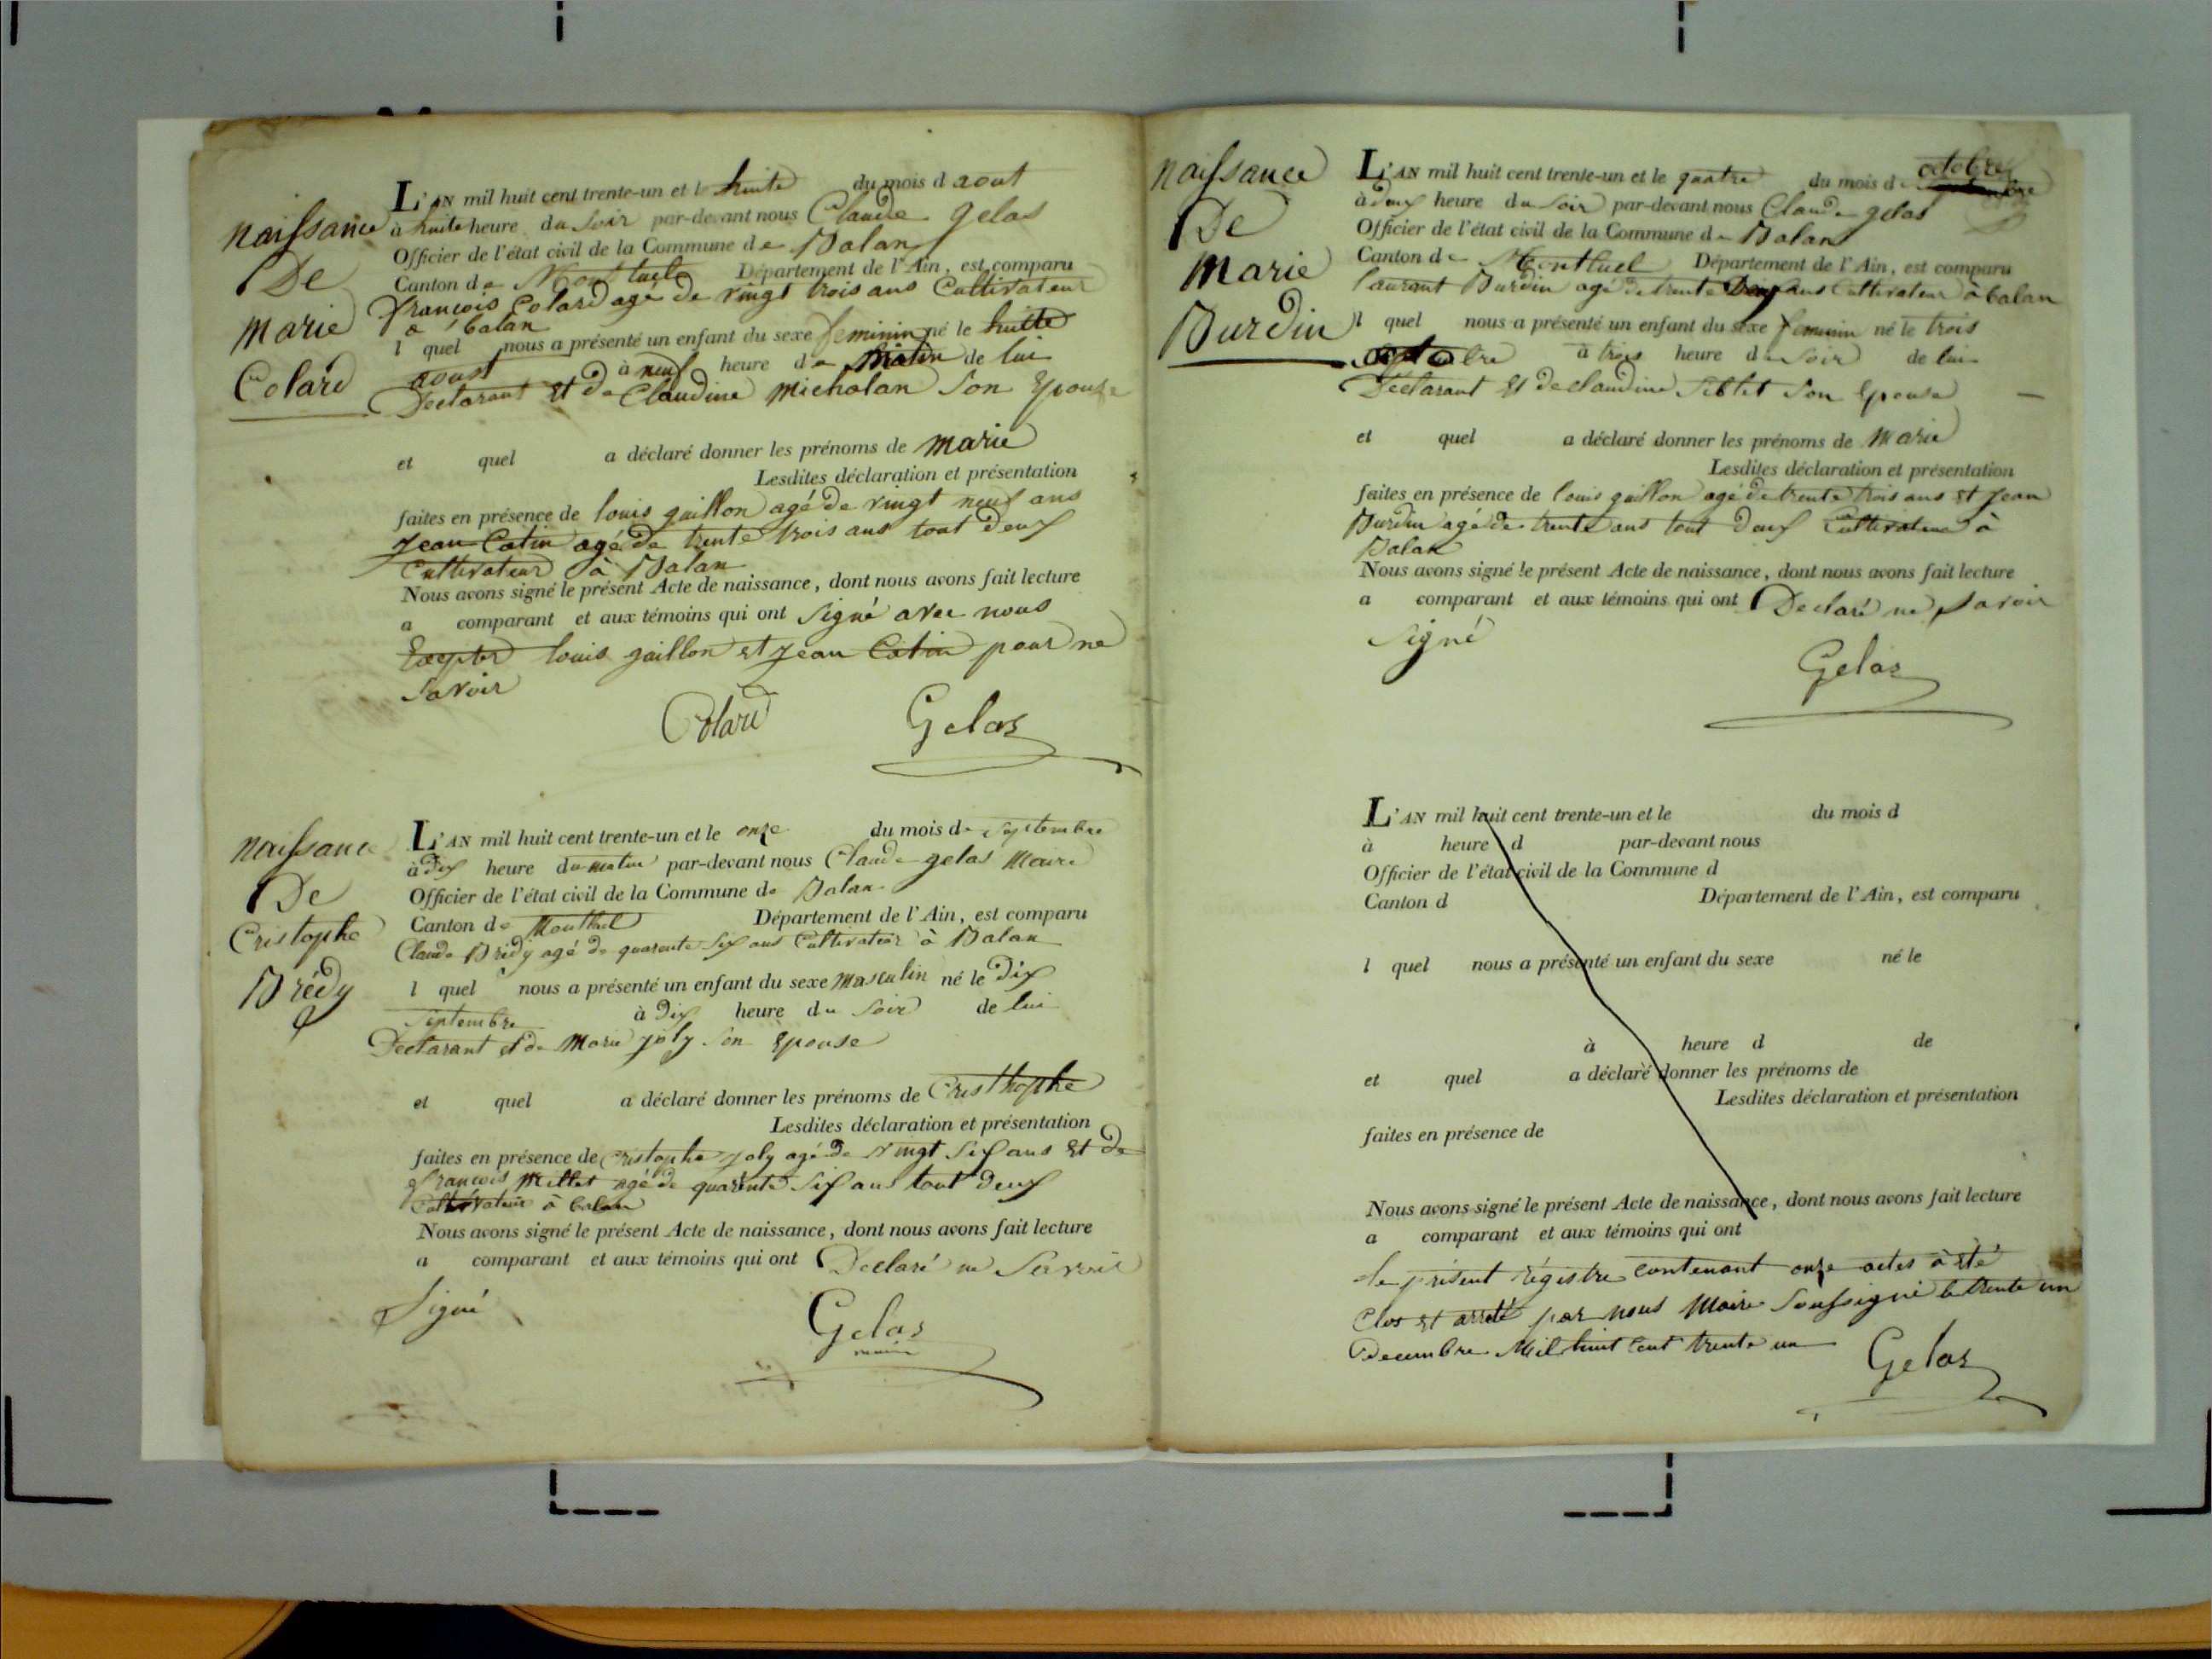 naissance
De
marie
Colard
L'AN mil huit cent trente-un et le huite du mois d aout
à huite heure du soir par-devant nous Claude gelas
Officier de l'état civil de la Commune de Balan
Canton de Département de l'Ain, est comparu
francois Colard agé de vingt trois ans Cultivateur
a balan
l quel nous a présenté un enfant du sexe feminin né le huitte
aoust à neuf heure de matin de lui
Declarant et de Claudine micholan Son Epouse
et quel a déclaré donner les prénoms de marie
Lesdites déclaration et présentation
faites en présence de louis gaillon agé de vingt neuf ans
jean Catin agé de trente trois ans tout deux
Cultivateur à Balan
Nous avons signé le présent Acte de naissance, dont nous avons fait lecture
a comparant et aux témoins qui ont Signé avec nous
Excepter louis gaillon et jean Catin pour ne
Savoir
Colard Gelas
naissance
De
Cristophe
Brédy
L'AN mil huit cent trente-un et le onze du mois de Septembre
à dix heure du matin par-devant nous Claude gelas Maire
Officier de l'état civil de la Commune de Balan
Canton de Montluel Département de l'Ain, est comparu
Claude Bridy agé de quarente six ans Cultivateur à Balan
l quel nous a présenté un enfant du sexe masculin né le Dix
Septembre à dix heure du soir de lui
Declarant et de Marie joly Son Epouse
et quel a déclaré donner les prénoms de Cristhophe
Lesdites déclaration et présentation
faites en présence de Cristophe joly agé de vingt six ans et de
francois Millet agé de quarente six ans tout deux
Cultivateur à balan
Nous avons signé le présent Acte de naissance, dont nous avons fait lecture
a comparant et aux témoins qui ont Declaré ne Savoir
Signé
Gelas
maire
naissance
De
Marie
Burdin
L'AN mil huit cent trente-un et le quatre du mois de octobre
à deux heure du soir par-devant nous Claude gelas
Officier de l'état civil de la Commune de Balan
Canton de Montluel Département de l'Ain, est comparu
laurant Burdin agé de trente Deux ans Cultivateur à balan
l quel nous a présenté un enfant du sexe feminin né le trois
à trois heure du soir de lui
Declarant et de claudine Siblet Son Epouse
et quel a déclaré donner les prénoms de Marie
Lesdites déclaration et présentation
faites en présence de louis gaillon agé de trente trois ans et jean
Burdin agé de trente ans tout deux Cultivateur à
Balan
Nous avons signé le présent Acte de naissance, dont nous avons fait lecture
a comparant et aux témoins qui ont Declaré ne Savoir
Signé
Gelas
L'AN mil huit cent trente-un et le du mois d
à heure d par-devant nous
Officier de l'état civil de la Commune d
Canton d Département de l'Ain, est comparu
l quel nous a présenté un enfant du sexe né le
à heure d de
et quel a déclaré donner les prénoms de
Lesdites déclaration et présentation
faites en présence de
Nous avons signé le présent Acte de naissance, dont nous avons fait lecture
a comparant et aux témoins qui ont
Le présent régistre contenant onze actes à été
Clos et arreté par nous Maire Soussigné le trente un
Decembre Mil huit Cent trente un
Gelas